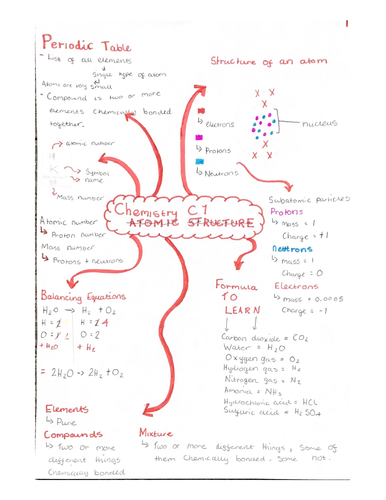 1
Periodic Table
- List of all elements
Single type of atom
Atoms are very small
- Compound is two or more
elements chemically bonded
together.
Structure of an atom
electrons
Protons
Neutrons
nucleus
atomic number
Symbol
name
Mass number
Atomic number
↳ Proton number
Mass number
↳ Protons + neutrons
Chemistry C1
ATOMIC STRUCTURE
Subatomic particles
Protons
↳ mass = 1
Charge = +1
Neutrons
↳ mass = 1
Charge = 0
Electrons
↳ mass = 0.0005
Charge = -1
Balancing Equations
H2O → H2 + O2
O = 2
+ H2O + H2
= 2H2O → 2H2 + O2
Formula
TO
LEARN
Carbon dioxide = CO2
Water = H2O
Oxygen gas = O2
Hydrogen gas = H2
Nitrogen gas = N2
Amonia = NH3
Hydrochloric acid = HCL
Sulfuric acid = H2SO4
Elements
↳ Pure
Compounds
↳ Two or more
different things
Chemically bonded
Mixture
↳ Two or more different things, Some of
them Chemically bonded. Some not.